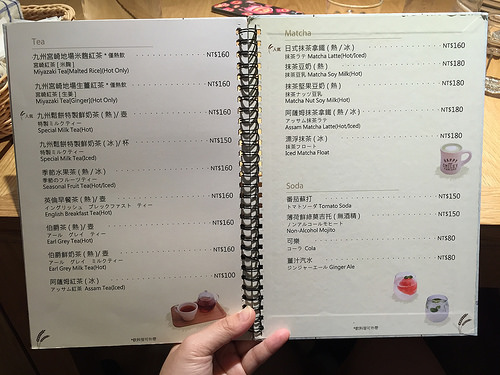 Tea
九州宮崎地場米麴紅茶 *僅熱飲 NT$160
宮崎紅茶 [米麴]
Miyazaki Tea[Malted Rice](Hot Only)
九州宮崎地場生薑紅茶 *僅熱飲 NT$160
宮崎紅茶 [生姜]
Miyazaki Tea[Ginger](Hot Only)
人氣 九州鬆餅特製鮮奶茶 ( 熱 ) / 壺 NT$160
特製ミルクティー
Special Milk Tea(Hot)
九州鬆餅特製鮮奶茶 ( 冰 ) / 杯 NT$150
特製ミルクティー
Special Milk Tea(Iced)
季節水果茶 ( 熱 / 冰 ) NT$160
季節のフルーツティー
Seasonal Fruit Tea(Hot/Iced)
英倫早餐茶 ( 熱 ) / 壺 NT$160
イングリッシュ ブレックファスト ティー
English Breakfast Tea(Hot)
伯爵茶 ( 熱 ) / 壺 NT$160
アール グレイ ティー
Earl Grey Tea(Hot)
伯爵鮮奶茶 ( 熱 ) / 壺 NT$160
アール グレイ ミルクティー
Earl Grey Milk Tea(Hot)
阿薩姆紅茶 ( 冰 ) NT$100
アッサム紅茶 Assam Tea(Iced)
*飲料皆可外帶
Matcha
人氣 日式抹茶拿鐵 ( 熱 / 冰 ) NT$160
抹茶ラテ Matcha Latte(Hot/Iced)
抹茶豆奶 ( 熱 ) NT$180
抹茶豆乳 Matcha Soy Milk(Hot)
抹茶堅果豆奶 ( 熱 ) NT$180
抹茶ナッツ豆乳
Matcha Nut Soy Milk(Hot)
阿薩姆抹茶拿鐵 ( 熱 / 冰 ) NT$180
アッサム抹茶ラテ
Assam Matcha Latte(Hot/Iced)
漂浮抹茶 ( 冰 ) NT$180
抹茶フロート
Iced Matcha Float
Soda
番茄蘇打 NT$150
トマトソーダ Tomato Soda
薄荷鮮綠莫吉托 ( 無酒精 ) NT$150
ノンアルコールモヒート
Non-Alcohol Mojito
可樂 NT$80
コーラ Cola
薑汁汽水 NT$80
ジンジャーエール Ginger Ale
*飲料皆可外帶